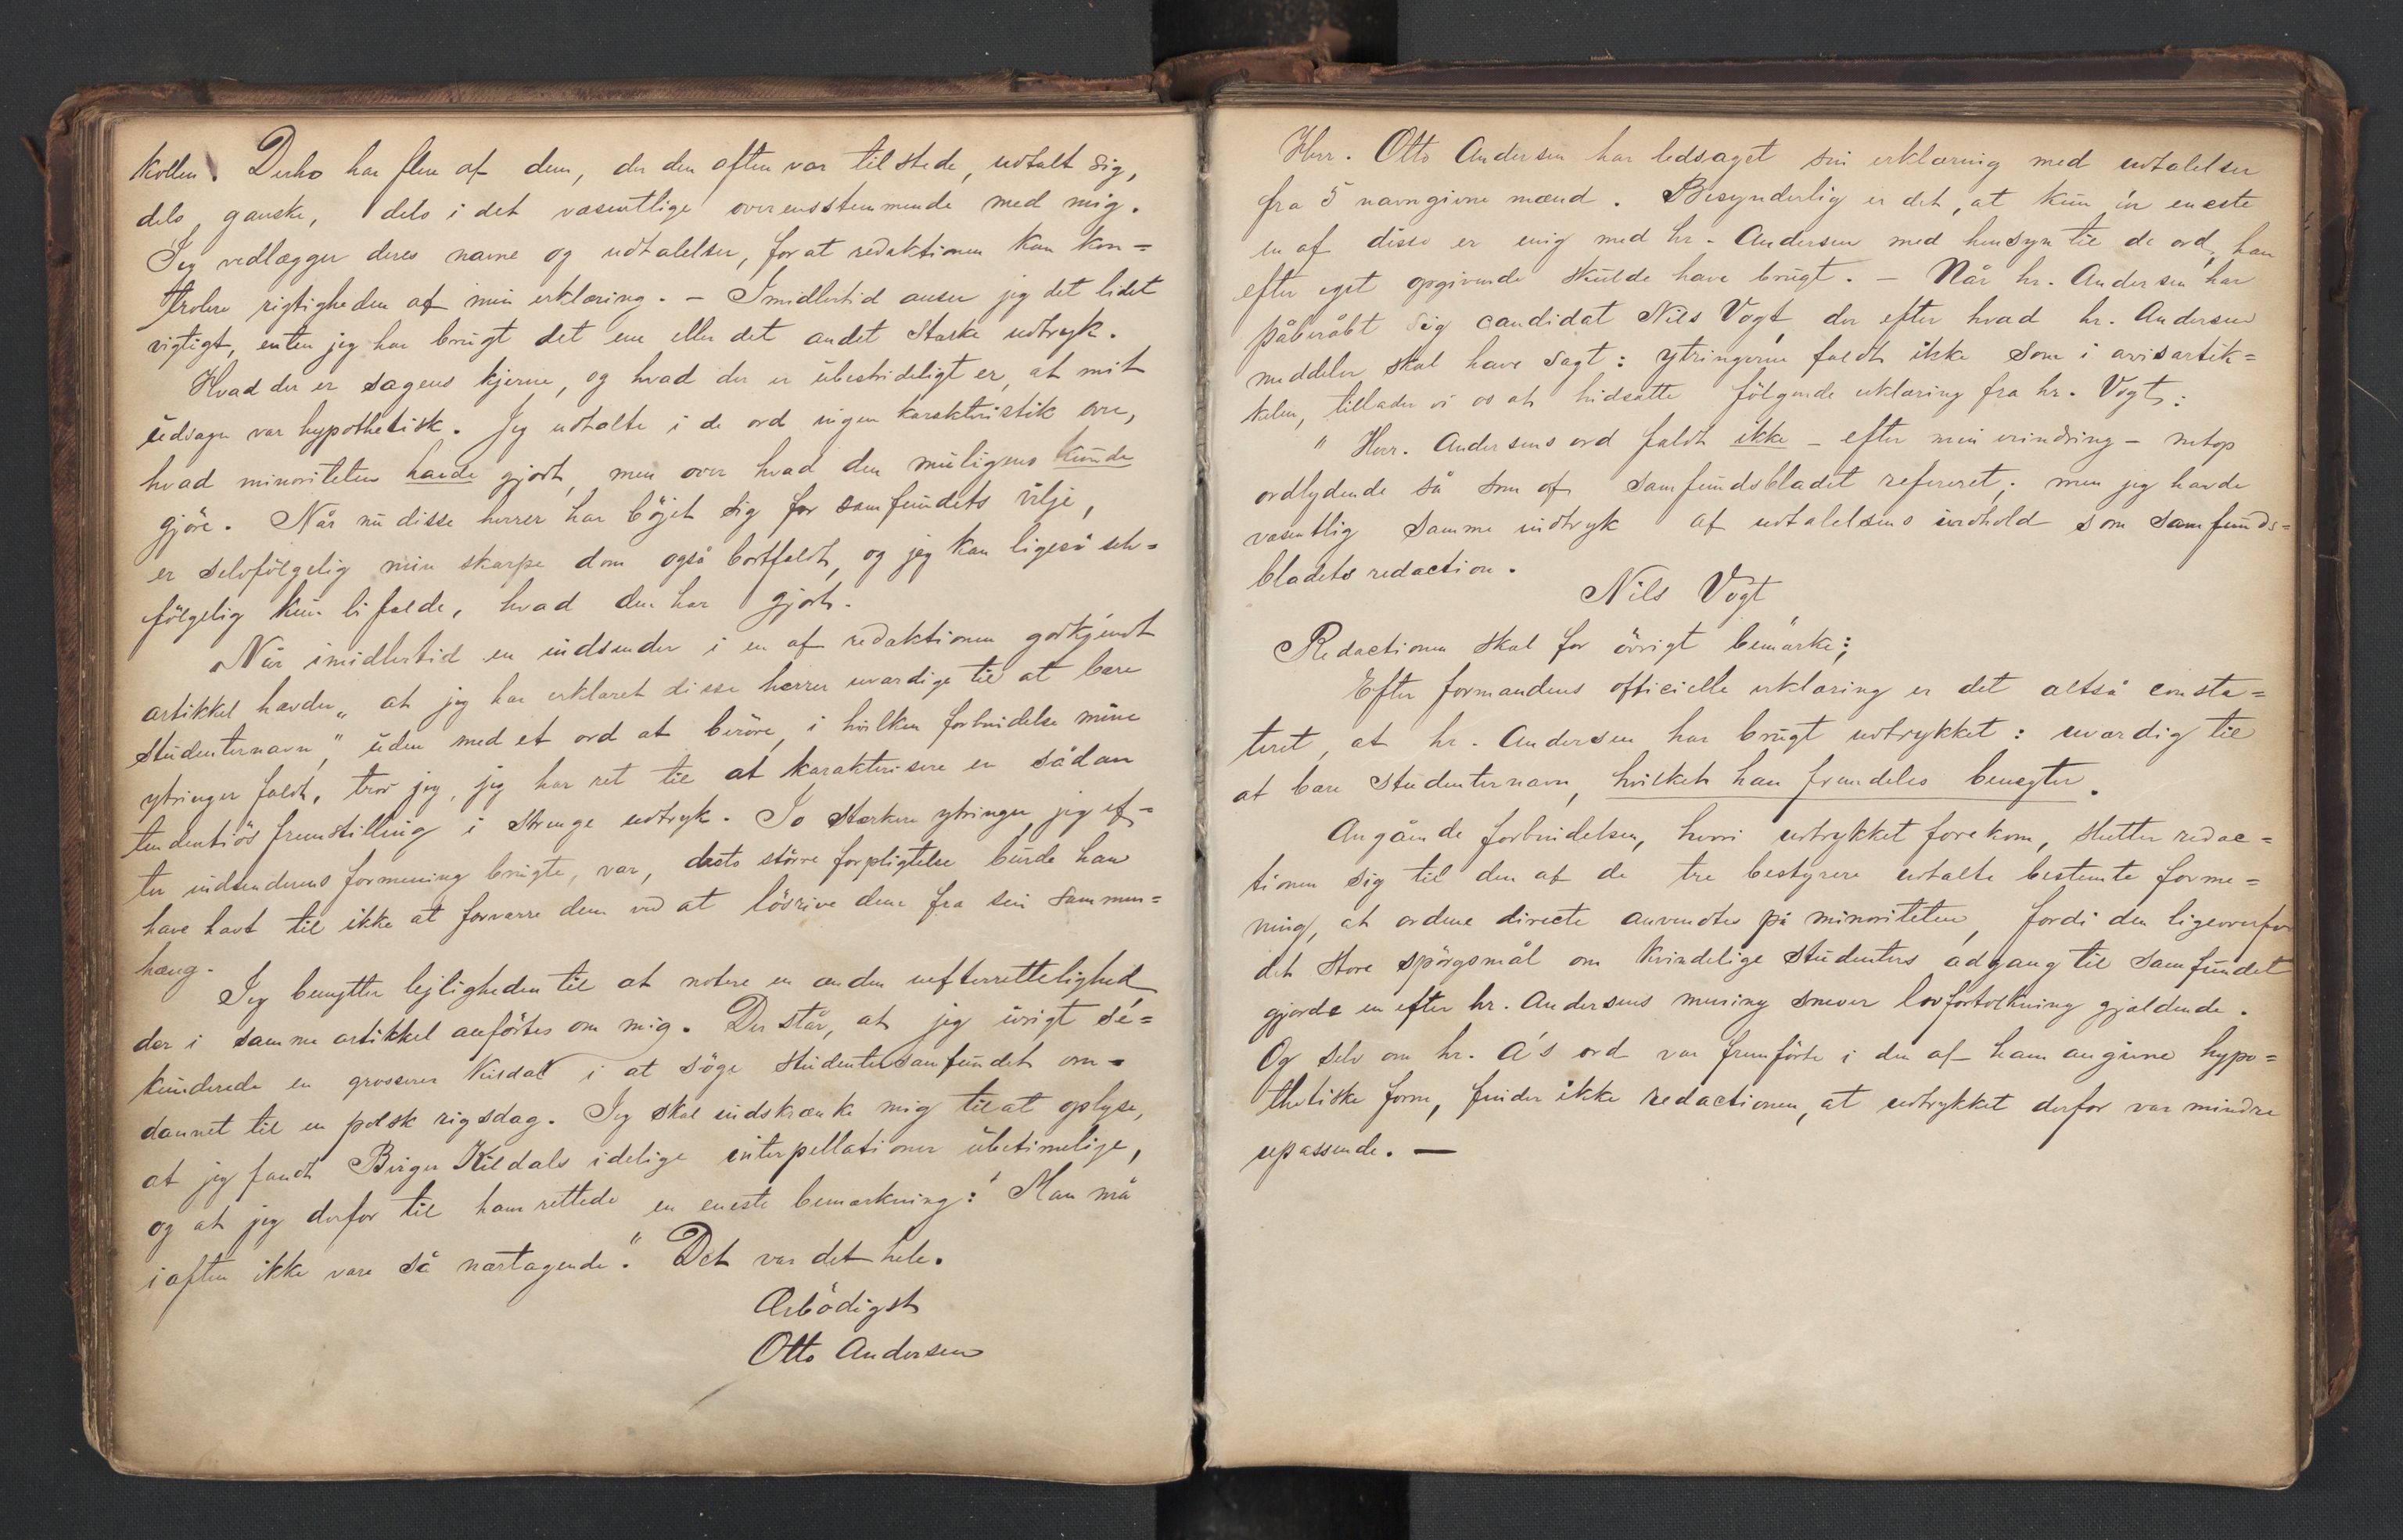 kollen. Desho har flere af dem, der den aften var tilstede, udtalt sig,
dels ganske, dels i det væsentlige overensstemmende med mig.
Jeg vedlægger deres navne og udtalelser, for at redaktionen kan kon=
trolere rigtigheden af min erklæring. – Imidlertid anser jeg det lidet
vigtigt, enten jeg har brugt det ene eller det andet stærke udtryk.
Hvad der er sagens kjerne, og hvad der er ubestrideligt er, at mit
udsagn var hypothetisk. Jeg udtalte i de ord ingen karakteristik over,
hvad minoriteten havde gjort, men over hvad den muligens kunde
gjöre. Når nu disse herrer har böjet sig for samfundets vilje,
er selvfölgelig min skarpe dom også bortfaldt, og jeg kan ligeså selv=
fölgelig kun bifalde, hvad den har gjort.
Når imidlertid en indsender i en af redaktionen godkjendt
artikkel hævder „at jeg har erklæret disse herrer uværdige til at bære
studenternavn", uden med et ord at beröre, i hvilken forbindelse mine
ytringer faldt, tror jeg, jeg har ret til at karakterisere en sådan
tendentiös fremstilling i strenge udtryk. Jo stærkere ytringer jeg ef=
ter indsenderens formening brugte, var, desto större forpligtelse burde han
have havt til ikke at forværre dem ved at lösrive dem fra sin sammen=
hæng.
Jeg benytter lejligheden til at notere en anden uefterrettelighed,
der i samme artikkel anförtes om mig. Der står, at jeg ivrigt se=
kunderede en grosserer Kildal i at söge studentersamfundet om=
dannet til en polsk rigsdag. Jeg skal indskrænke mig til at oplyse,
at jeg fandt Birger Kildals idelige interpellationer ubetimelige,
og at jeg derfor til ham rettede en eneste bemærkning: "Man må
iaften ikke være så nærtagende." Det var det hele.
Ærbödigst
Otto Andersen
Herr. Otto Andersen har ledsaget sin erklæring med udtalelser
fra 5 navngivne mænd. Besynderlig er det, at kun én eneste
en af disse er enig med hr. Andersen med hensyn til de ord, han
efter eget opgivende skulde have brugt. – Når hr. Andersen har
påberåbt sig candidat Nils Vogt, der efter hvad hr. Andersen
meddeler skal have sagt: ytringerne faldt ikke som i avisartik=
kelen, tillader vi os at hidsætte fölgende erklæring fra hr. Vogt:
"Herr. Andersens ord faldt ikke – efter min erindring – netop
ordlydende så som af samfundsbladet refereret; men jeg havde
væsentlig samme indtryk af udtalelsens indhold som samfunds=
bladets redaction.
Nils Vogt"
Redactionen skal for övrigt bemærke;
Efter formandens officielle erklæring er det altså consta=
teret, at hr. Andersen har brugt udtrykket: uværdig til
at bære studenternavn, hvilket han fremdeles benegter.
Angående forbindelsen, hvori udtrykket forekom, slutter redac=
tionen sig til den af de tre bestyrere udtalte bestemte forme=
ning, at ordene directe anvendtes på minoriteten, fordi den ligeoverfor
det store spörgsmål om kvindelige studenters adgang til samfundet
gjorde en efter hr. Andersens mening snever lovfortolkning gjældende.
Og selv om hr. A's ord var fremförte i den af ham angivne hypo=
thetiske form, finder ikke redactionen, at udtrykket derfor var mindre
upassende. —